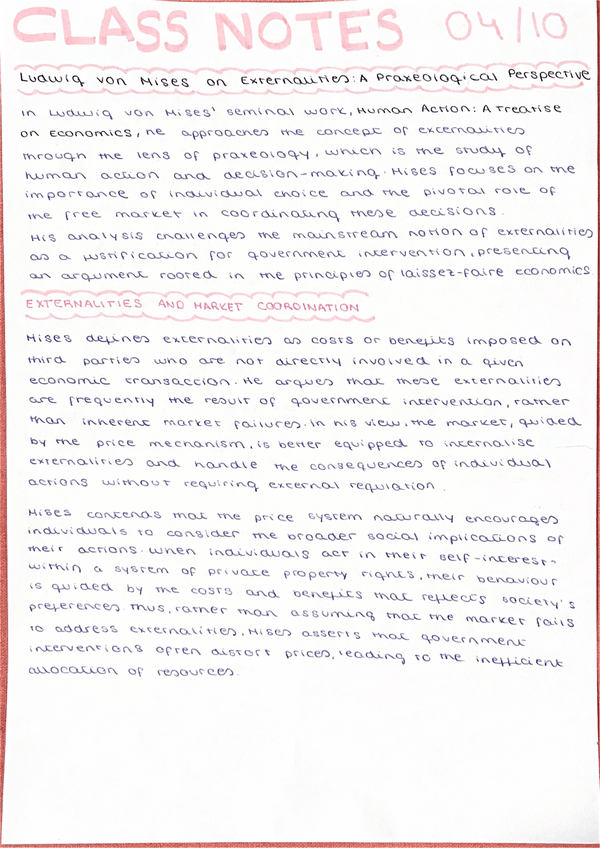 CLASS NOTES 04/10
Ludwig von Mises on Externalities: A Praxeological Perspective
In Ludwig von Mises' seminal work, Human Action: A Treatise
on Economics, he approaches the concept of externalities
through the lens of praxeology, which is the study of
human action and decision-making. Mises focuses on the
importance of individual choice and the pivotal role of
the free market in coordinating these decisions.
His analysis challenges the mainstream notion of externalities
as a justification for government intervention, presenting
an argument rooted in the principles of laissez-faire economics
EXTERNALITIES AND MARKET COORDINATION
Mises defines externalities as costs or benefits imposed on
third parties who are not directly involved in a given
economic transaccion. He argues that these externalities
are frequently the result of government intervention, rather
than inherent market failures. In his view, the market, guided
by the price mechanism, is better equipped to internalise
externalities and handle the consequences of individual
actions without requiring external regulation.
Mises contends that the price system naturally encourages
individuals to consider the broader social implications of
their actions. When individuals act in their self-interest,
within a system of private property rights, their behaviour
is guided by the costs and benefits that reflects society's
preferences. Thus, rather than assuming that the market fails
to address externalities, Mises asserts that government
interventions often distort prices, leading to the inefficient
allocation of resources.